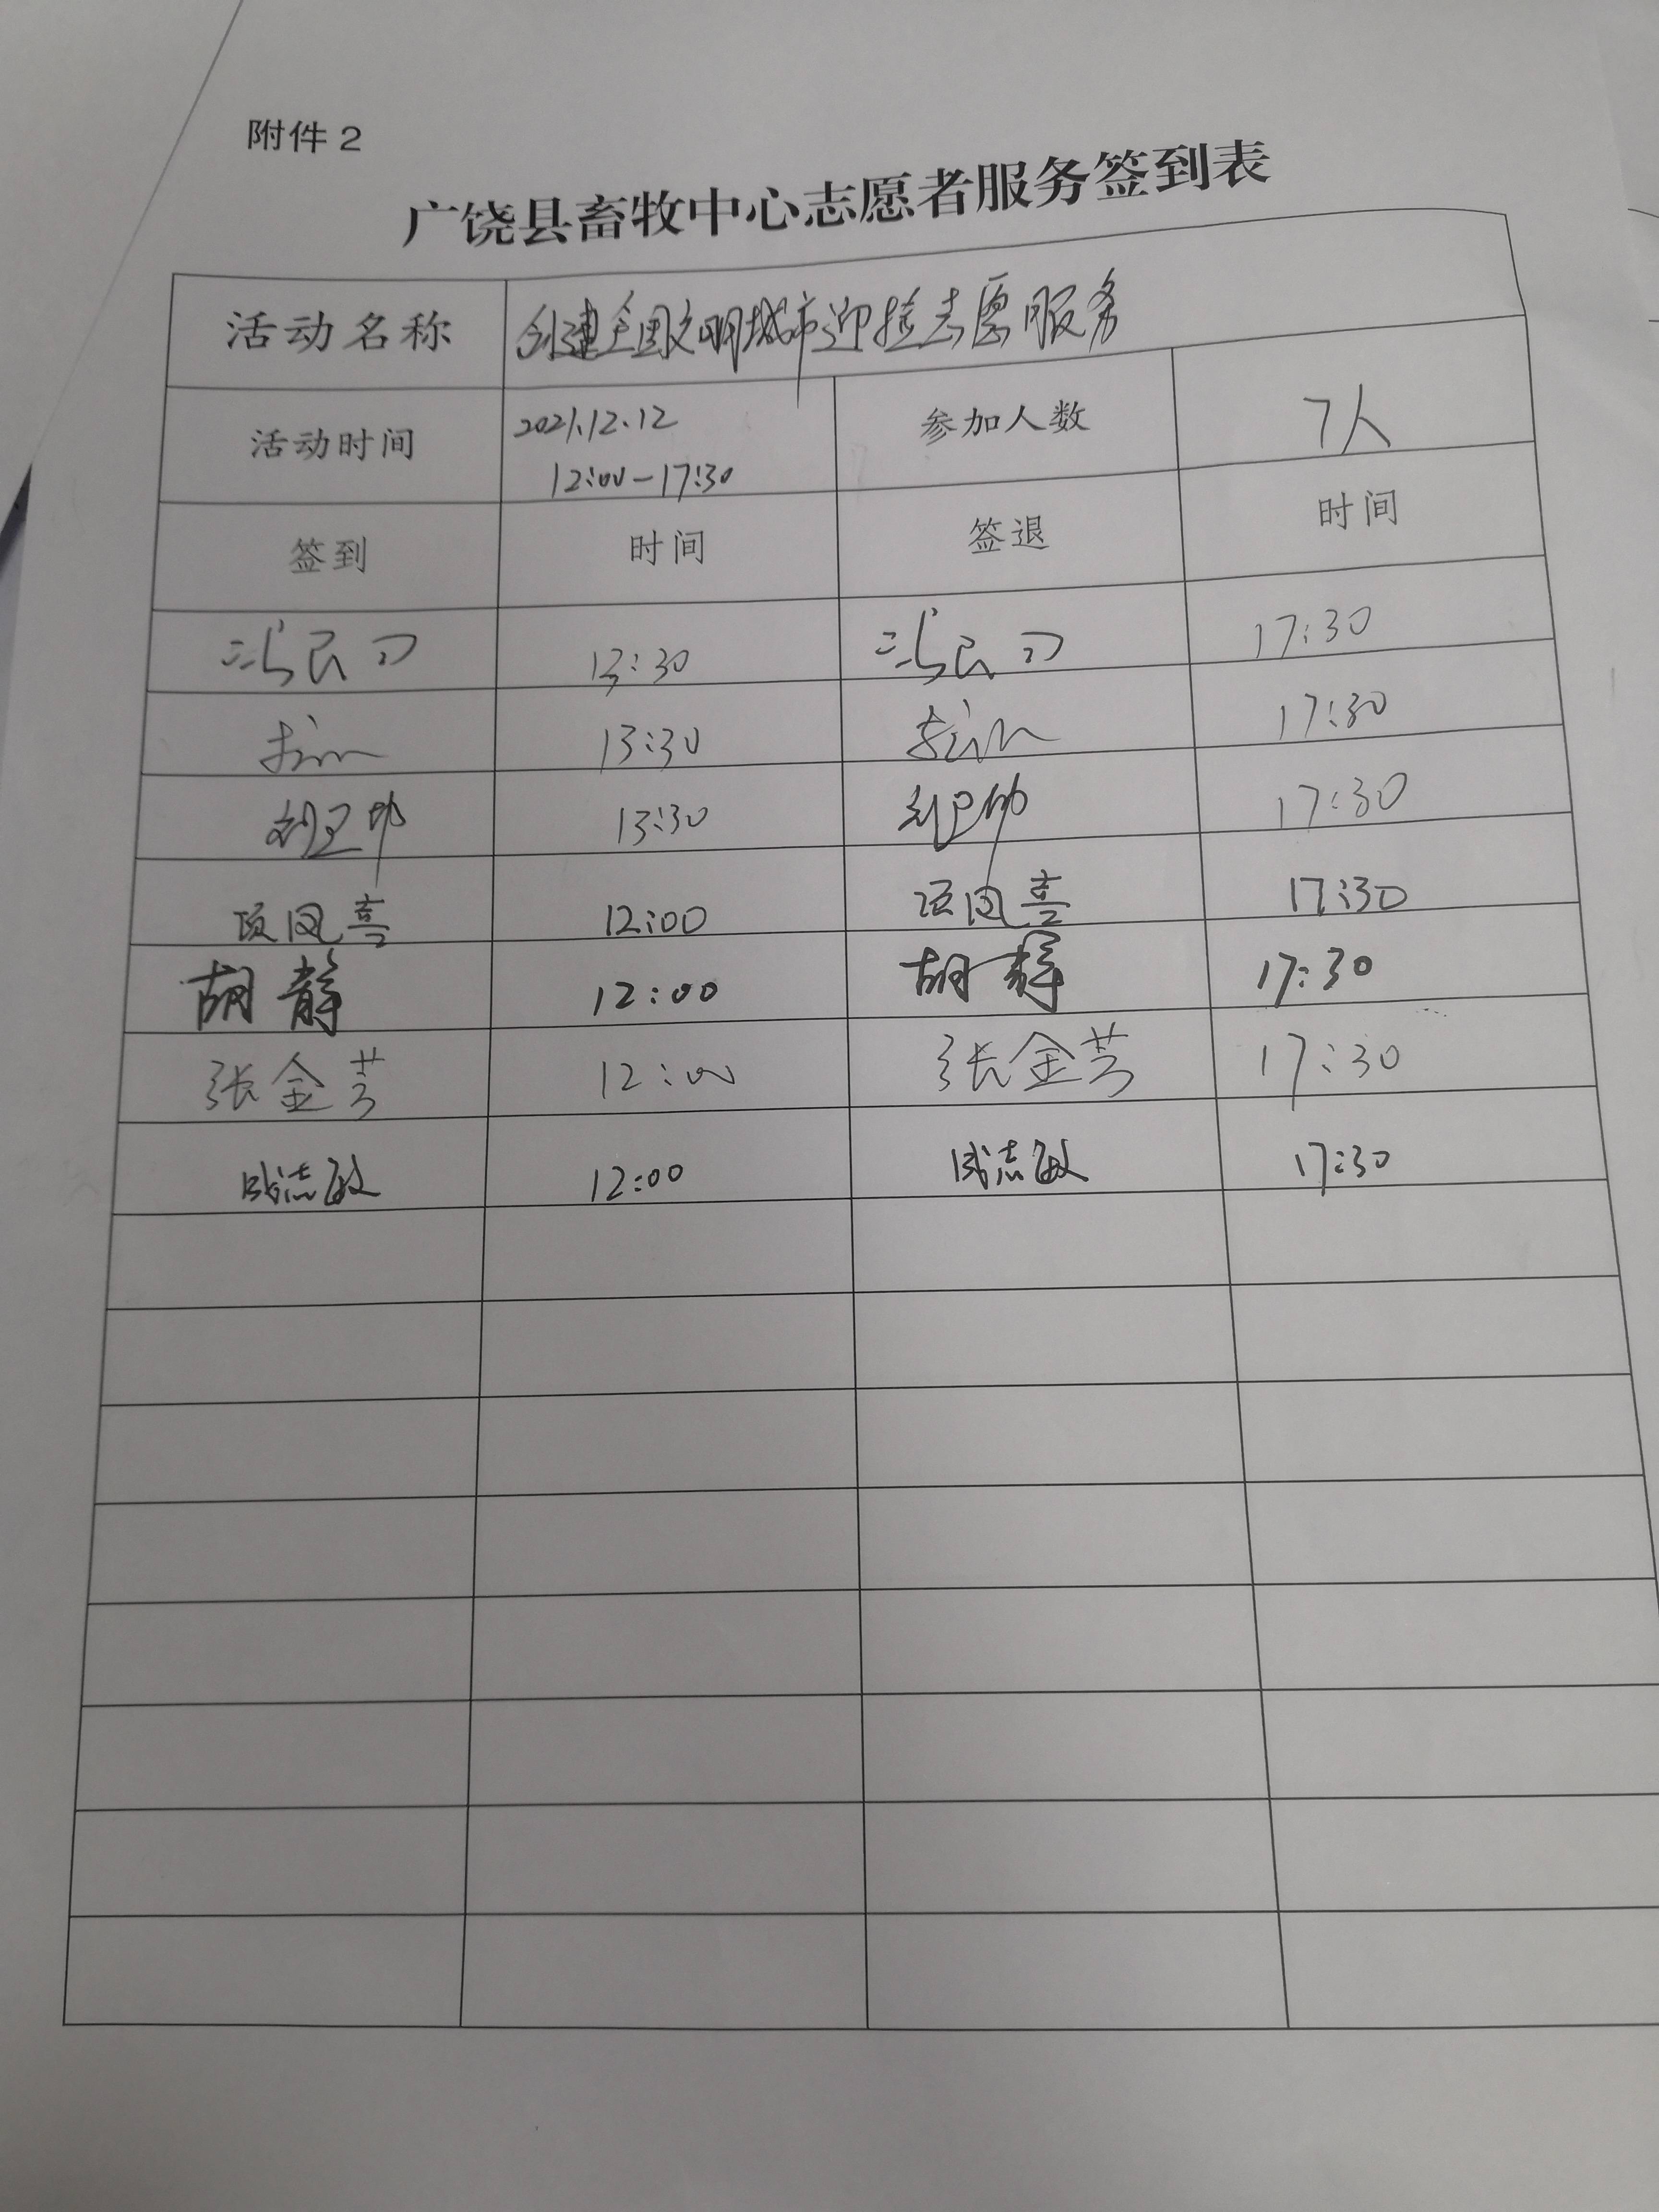 附件2
广饶县畜牧中心志愿者服务签到表
活动名称 创建全国文明城市迎检志愿服务
活动时间 2021.12.12 参加人数 7人
12:00-17:30
签到 时间 签退 时间
13:30 17:30
13:30 17:30
13:30 17:30
项凤喜 12:00 项凤喜 17:30
胡静 12:00 胡静 17:30
张金芳 12:00 张金芳 17:30
成志敏 12:00 成志敏 17:30